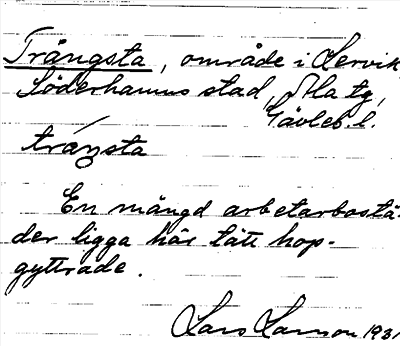 Trångsta, område i Servik
Söderhamns stad, Ala tg,
Gävleb. l.
trångsta
En mängd arbetarbostä-
der ligga här tätt hop-
gyttrade.
Lars Larsson 1931